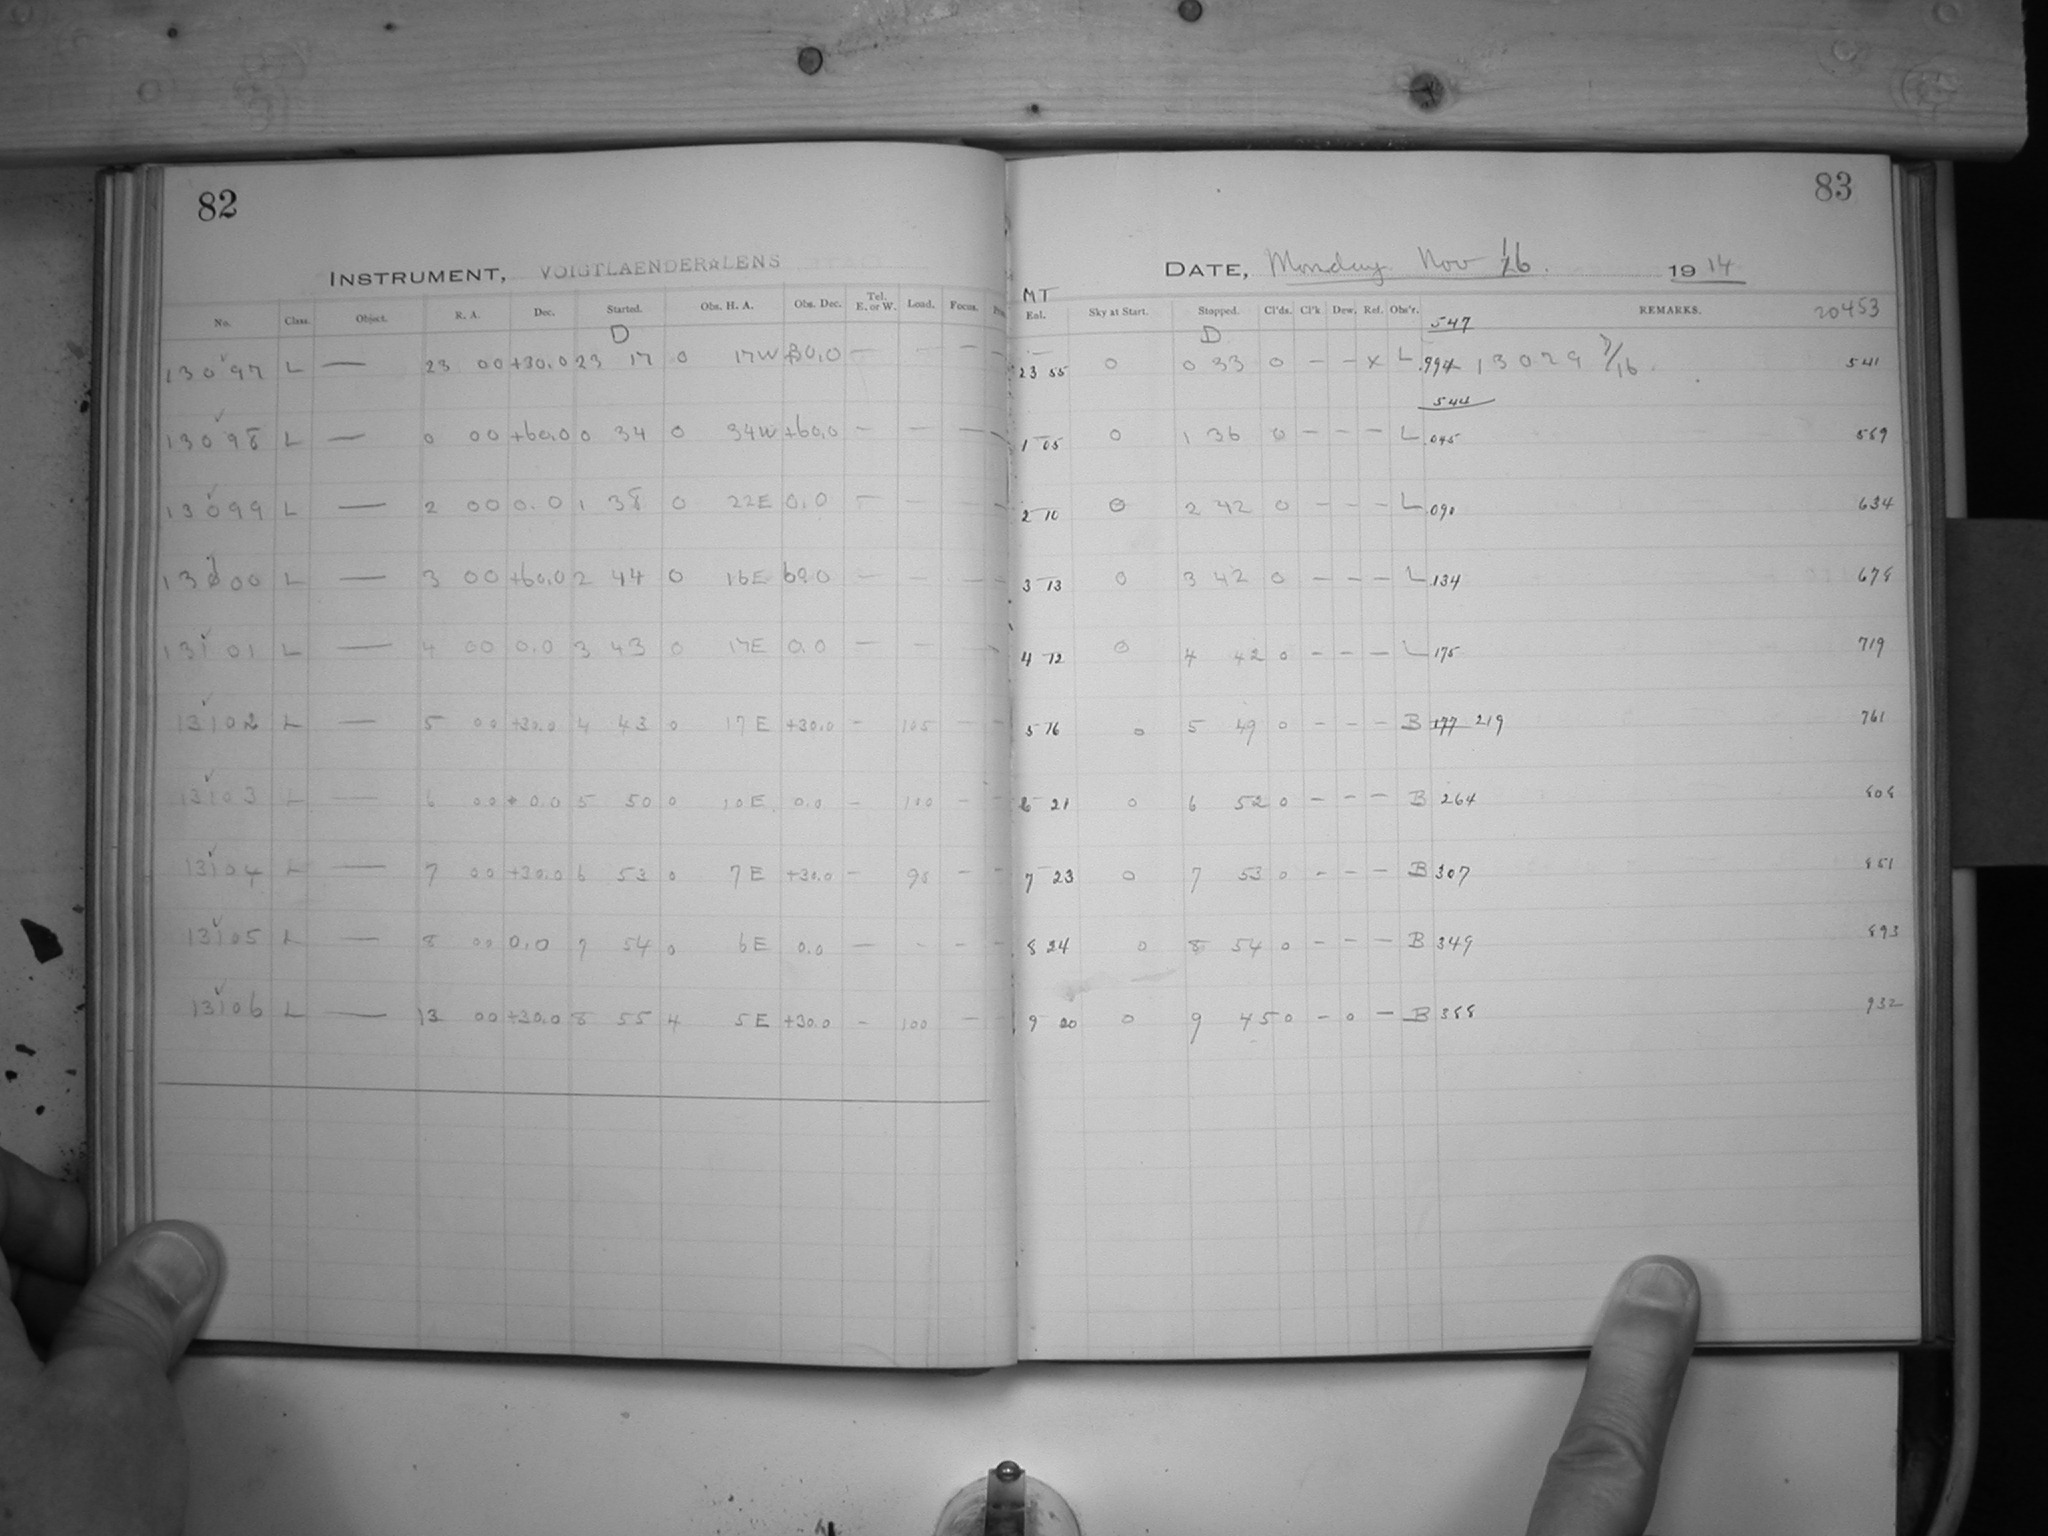 82
INSTRUMENT, VOIGTLAENDER LENS
No. Class. Object. R. A. Dec. Started. Obs. H. A. Obs. Dec. Tel. E. or W. Load. Focus.
D
13097 L — 23 00 +30.0 23 17 0 17W +30.0 — — — —
13098 L — 0 00 +60.0 0 34 0 34W +60.0 — — — —
13099 L — 2 00 0.0 1 38 0 22E 0.0 — — — —
13100 L — 3 00 +60.0 2 44 0 16E 60.0 — — — —
13101 L — 4 00 0.0 3 43 0 17E 0.0 — — — —
13102 L — 5 00 +30.0 4 43 0 17E +30.0 — 105 — —
13103 L — 6 00 0.0 5 50 0 10E 0.0 — 100 — —
13104 L — 7 00 +30.0 6 53 0 7E +30.0 — — —
13105 L — 8 00 0.0 7 54 0 6E 0.0 — - - —
13106 L — 13 00 +30.0 8 55 4 5E +30.0 — 100 — —
83
DATE, Monday Nov 16. 1914
MT
Enl. Sky at Start. Stopped. Cl'ds. Cl'k Dew. Ref. Obs'r. REMARKS. 20453
D 547
23 55 0 0 33 0 — — x L .994 13029 7/16. 541
544
1 05 0 1 36 0 — — — L .045 589
2 10 0 2 42 0 — — — L .090 634
3 13 0 3 42 0 — — — L .134 678
4 12 0 4 42 0 — — — L 175 719
5 16 0 5 49 0 — — — B 177 219 761
6 21 0 6 52 0 — — — B 264 808
7 23 0 7 53 0 — — — B 307 851
8 24 0 8 54 0 — — — B 349 893
9 20 0 9 45 0 — 0 — B 388 932